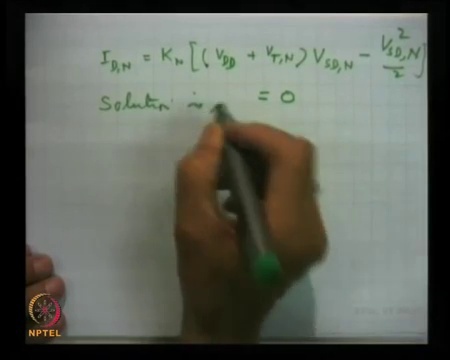 I_{D,N} = K_N [(V_{DD} + V_{T,N}) V_{SD,N} - \frac{V_{SD,N}^2}{2}]
Solution is = 0
NPTEL